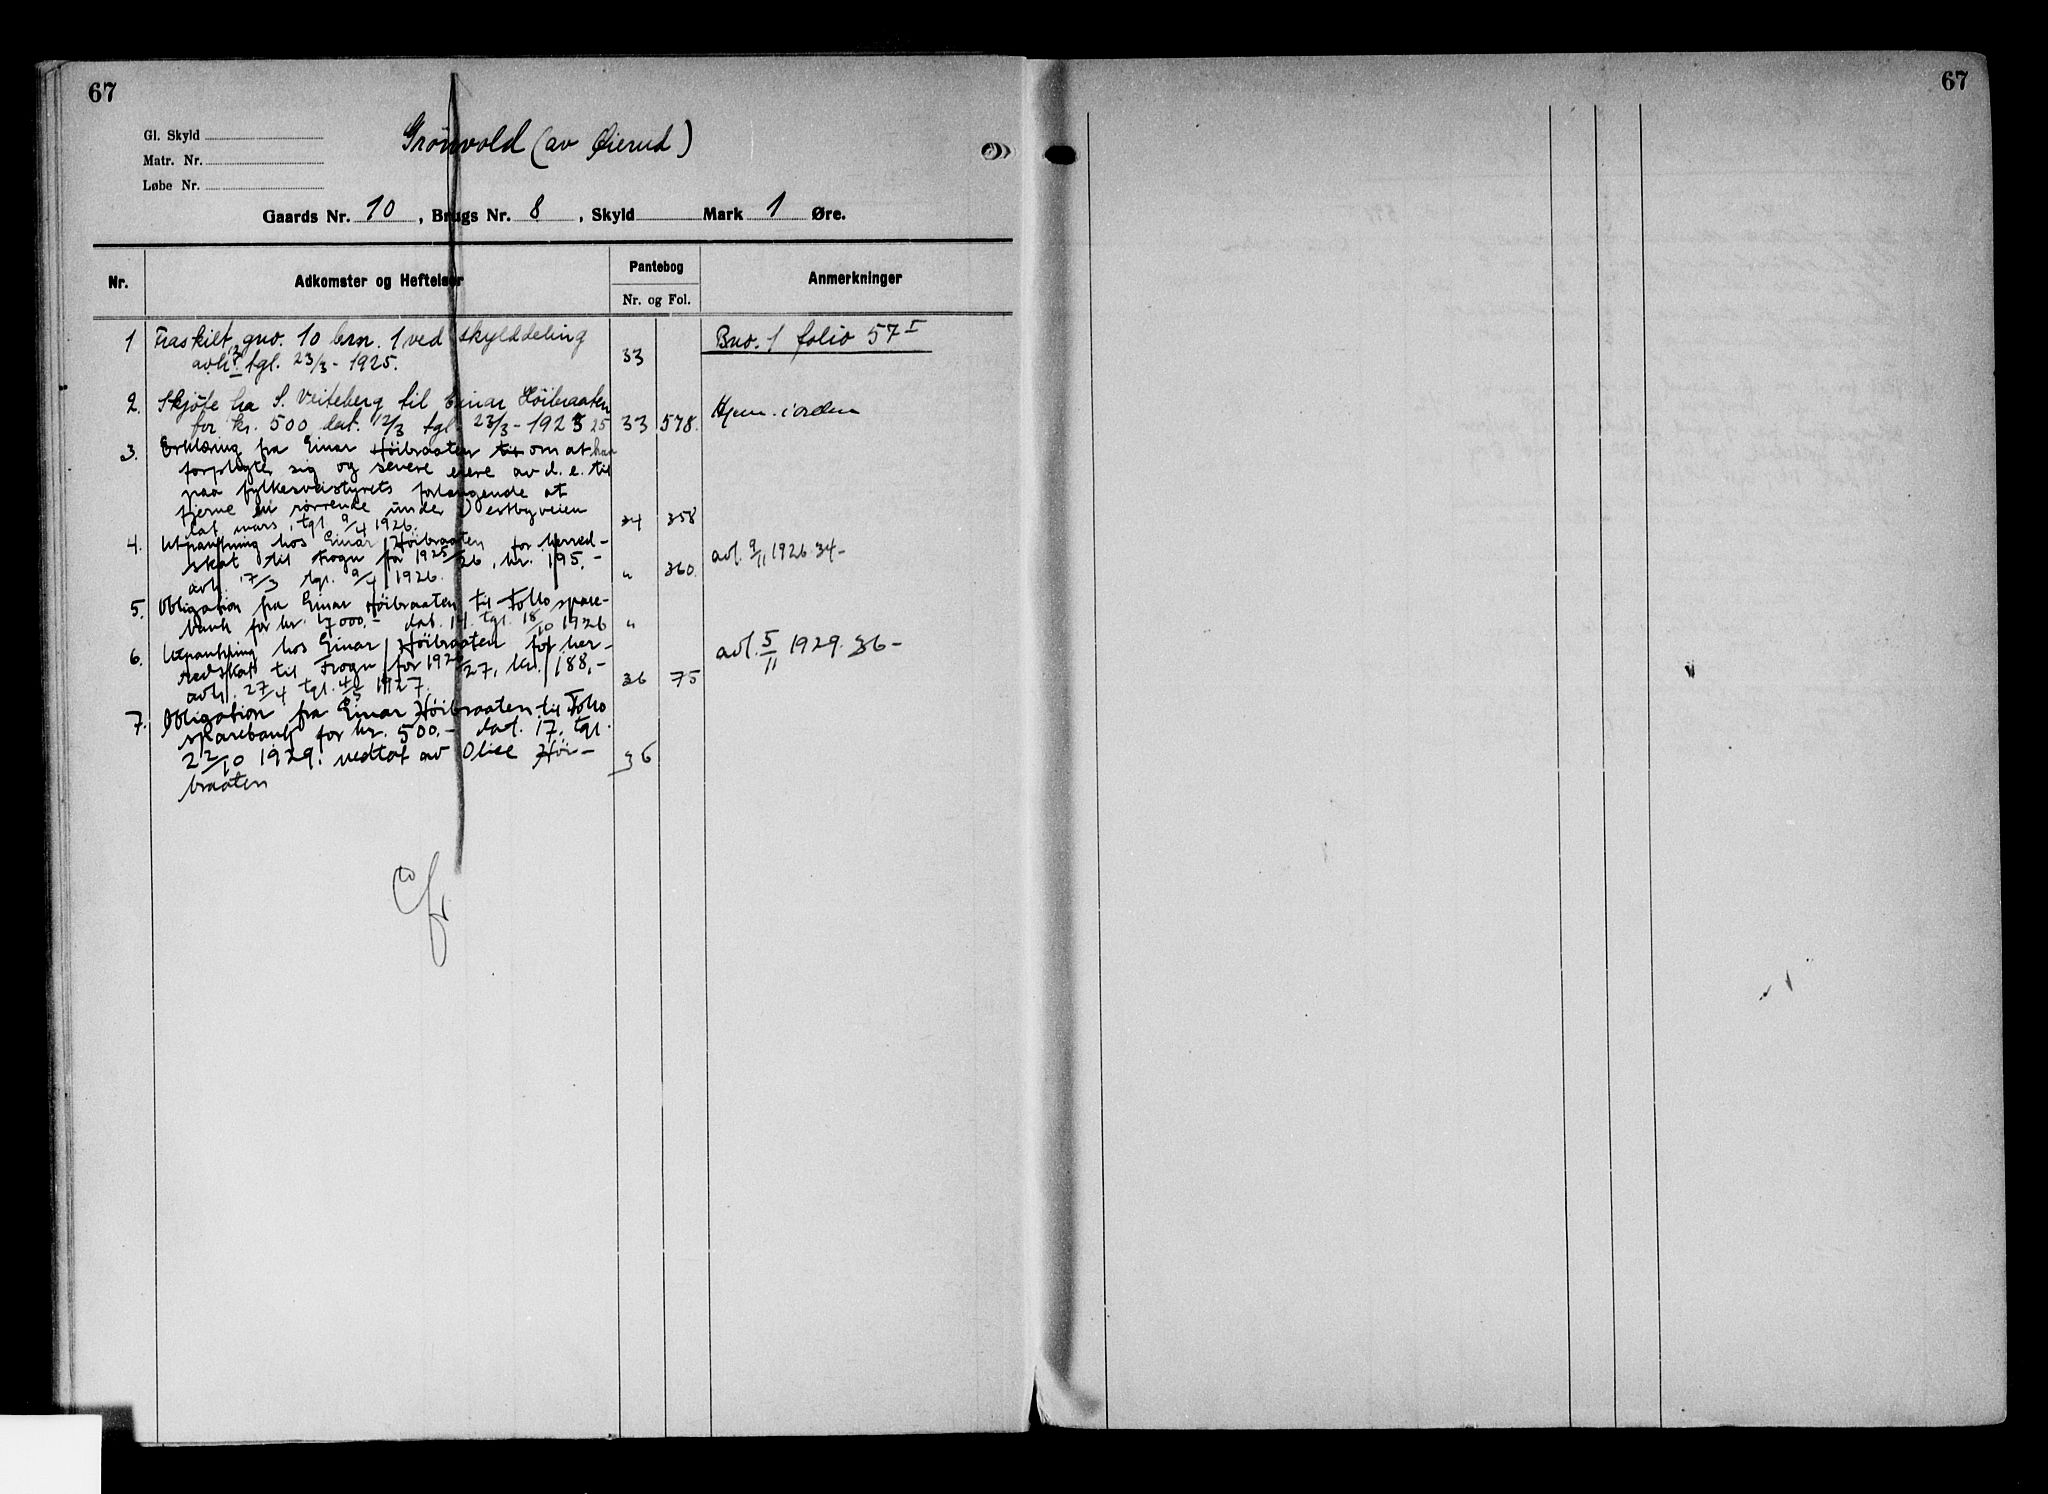 67
67
Gl. Skyld
Matr. Nr.
Løbe Nr.
Grönvold (av Øierud)
Gaards Nr. 10, Brugs Nr. 8, Skyld Mark 1 Øre.
Nr. Adkomster og Heftelser Pantebog Anmerkninger
Nr. og Fol.
1 Fraskilt gno. 10 brn. 1 ved skylddeling Bno. 1 folio 57 I
avh. tgl. 23/3 - 1925. 33
2. Skjöte fra S. Veiteberg til Einar Höibraaten
for kr. 500 dat. 12/3 tgl. 23/3 - 1925 33 578. Hjem. i orden
3. Erklæring fra Einar Höibraaten til om at han
forplikter sig og senere eiere av d. e. til
paa fylkesveistyrets forlangende at
fjerne en rörrende under Vestbyveien
dat mars, tgl. 9/4 1926. 34 358
4. Utpantning hos Einar Höibraaten for herred-
skat til Frogn for 1925/26, kr. 195.- avl. 9/11 1926. 34-
avh. 17/3 tgl. 9/4 1926. " 360.
5. Obligation fra Einar Höibraaten til Follo spare-
bank for kr. 7000.- dat. 14. tgl. 18/10 1926 "
6. Utpantning hos Einar Höibraaten for her-
redskat til Frogn for 1926/27, kr. 188,- avl. 5/11 1929. 36-
avh. 27/4 tgl. 4/5 1927. 36 75
7. Obligation fra Einar Höibraaten til Follo
sparebank for kr. 500.- dat. 17. tgl.
22/10 1929. vedtat av Olise Höi- 36
braaten